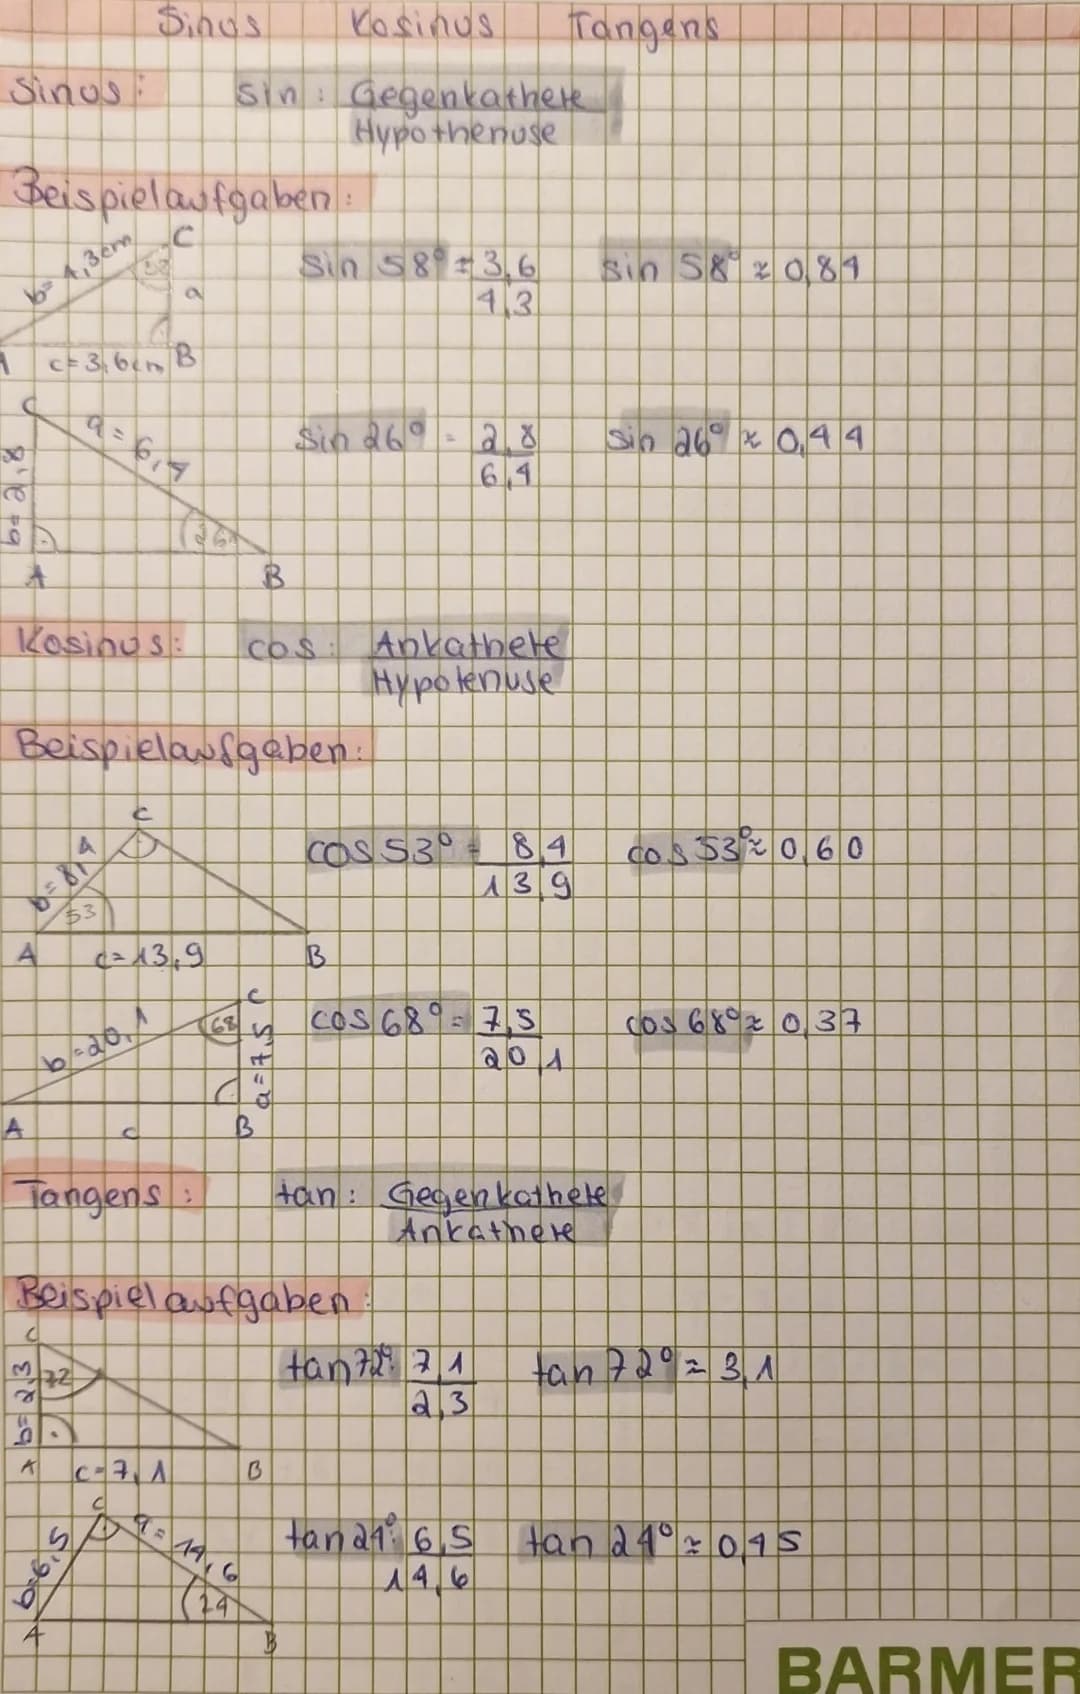 Sinus Kosinus Tangens
Sinus: sin: Gegenkathete
Hypothenuse
Beispielaufgaben:
C
b= 4,3cm
58
a
sin 58° = 3,6
4,3
sin 58° ≈ 0,84
A c=3,6cm B
C
a= 6,4
b=2,8
26
sin 26° = 2,8
6,4
sin 26° ≈ 0,44
A B
Kosinus: cos: Ankathete
Hypotenuse
Beispielaufgaben:
C
b=8,4
53
cos 53° = 8,4
13,9
cos 53° ≈ 0,60
A c=13,9 B
C
b=20,1
68
a=7,5
cos 68° = 7,5
20,1
cos 68° ≈ 0,37
A c B
Tangens: tan: Gegenkathete
Ankathete
Beispielaufgaben:
C
b=2,3
72
tan 72°: 7,1
2,3
tan 72° ≈ 3,1
A c=7,1 B
C
b=6,5
a= 14,6
24
tan 24°: 6,5
14,6
tan 24° ≈ 0,45
A B
BARMER